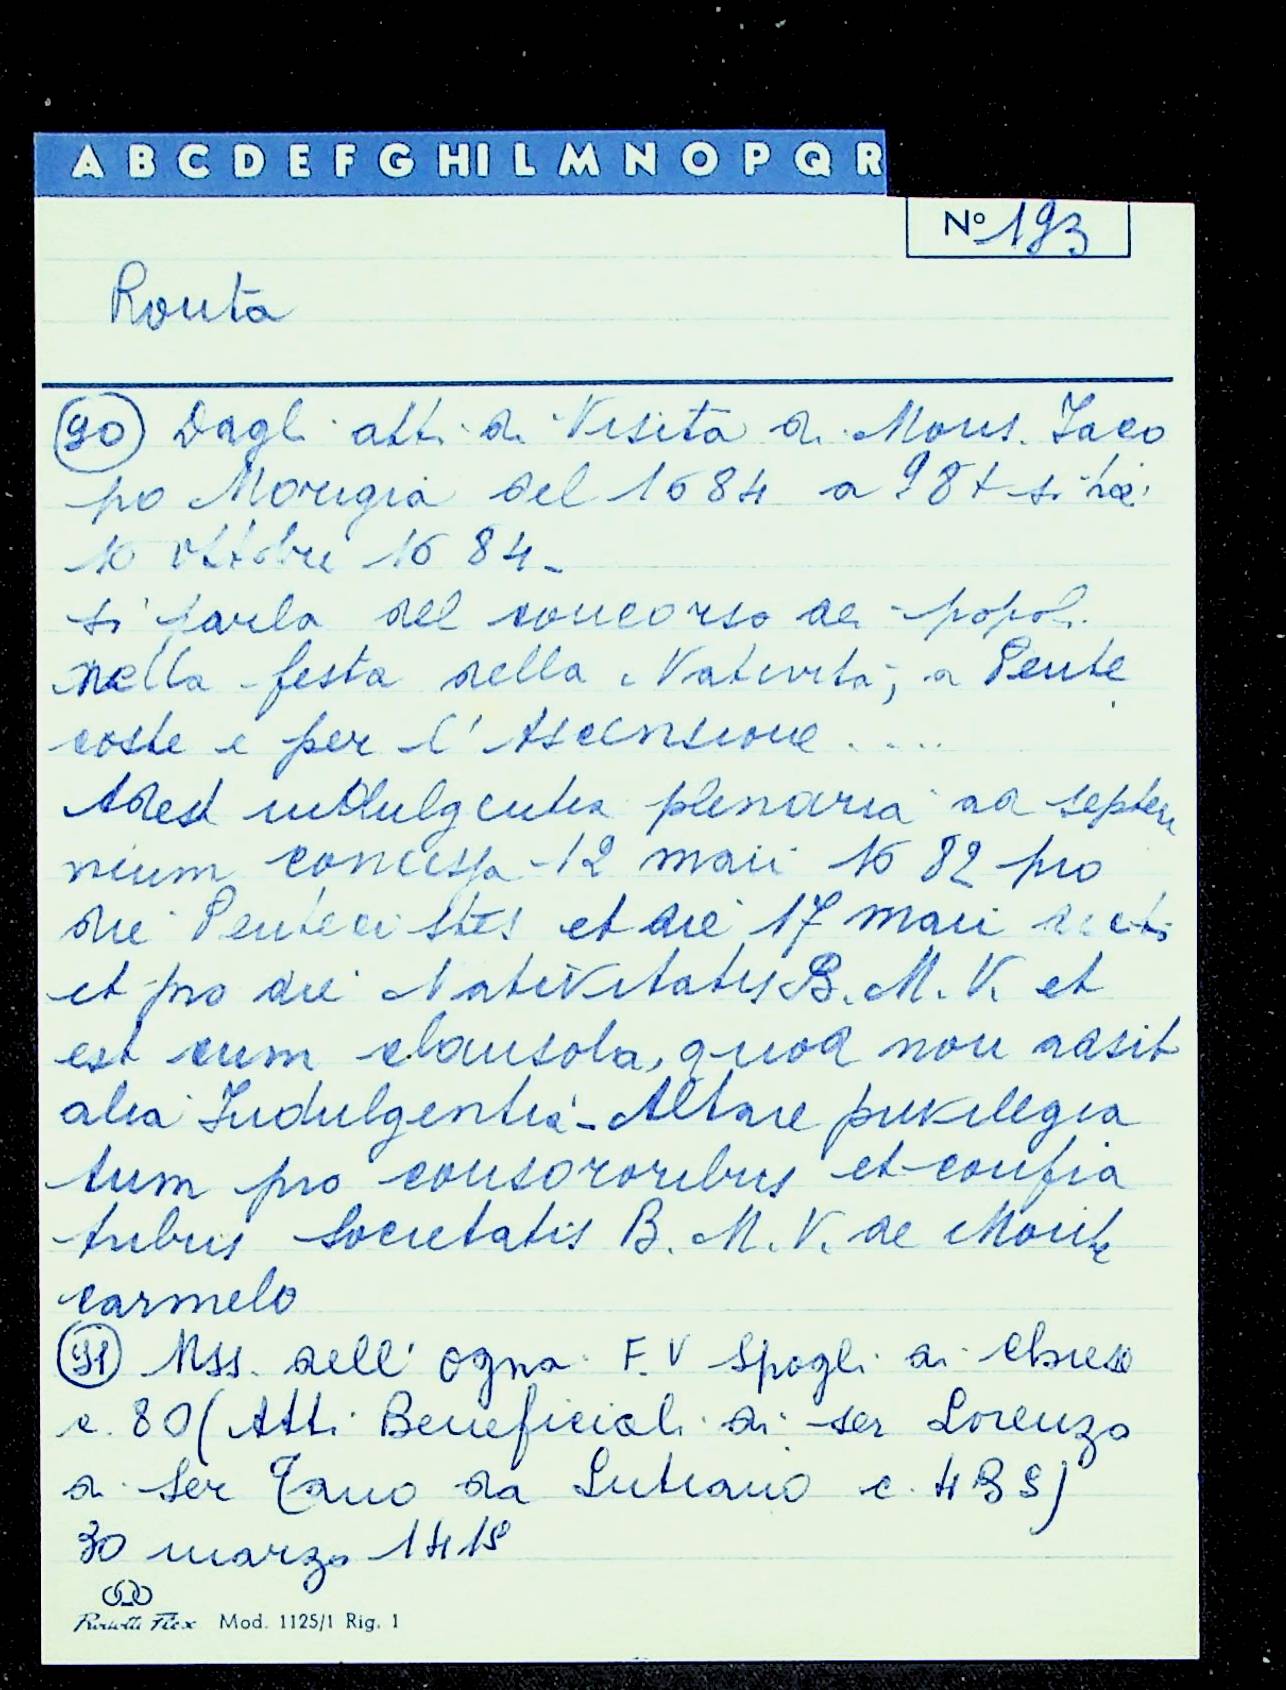 A B C D E F G HI L M N O P Q R
N° 193
Ronta
90 Dagli atti di Visita di Mons. Jaco
po Morigia del 1684 a 98t si ha:
16 ottobre 1684-
si parla del concorso dei popoli
nella festa della Natività, a Pente
coste e per l'Ascensione ....
Adest indulgentia plenaria ad septen
nium concessa 12 maii 1682 pro
die Pentecostes et die 17 maii
et pro die Nativitatis B. M. V. et
est cum clausola, quod non adsit
alia Indulgentia - Altare privilegia
tum pro consororibus et confra
tribus Societatis B. M. V. de Monte
carmelo
91 Mss. dell'Ogna F. V Spogli di
c. 80 (Atti Beneficiali di ser Lorenzo
di Ser Tano da Lutiano c. 439)
30 marzo 1418
Mod. 1125/1 Rig. 1